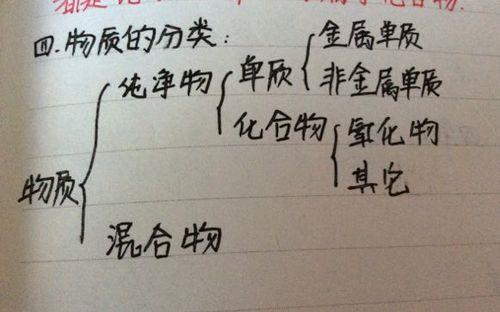 都是
四.物质的分类:
金属单质
纯净物 单质 非金属单质
化合物 氧化物
物质 其它
混合物